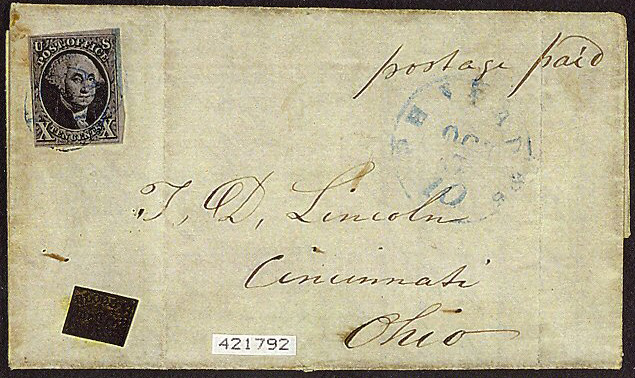 U S
POST OFFICE
X TEN CENTS X
postage paid
10
T. D. Lincoln
Cincinnati
Ohio
421792